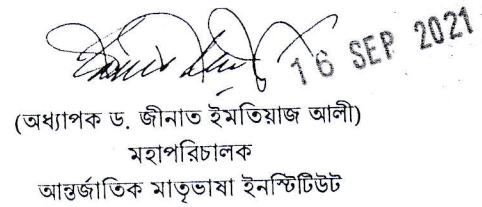 16 SEP 2021
(অধ্যাপক ড. জীনাত ইমতিয়াজ আলী)
মহাপরিচালক
আন্তর্জাতিক মাতৃভাষা ইনস্টিটিউট